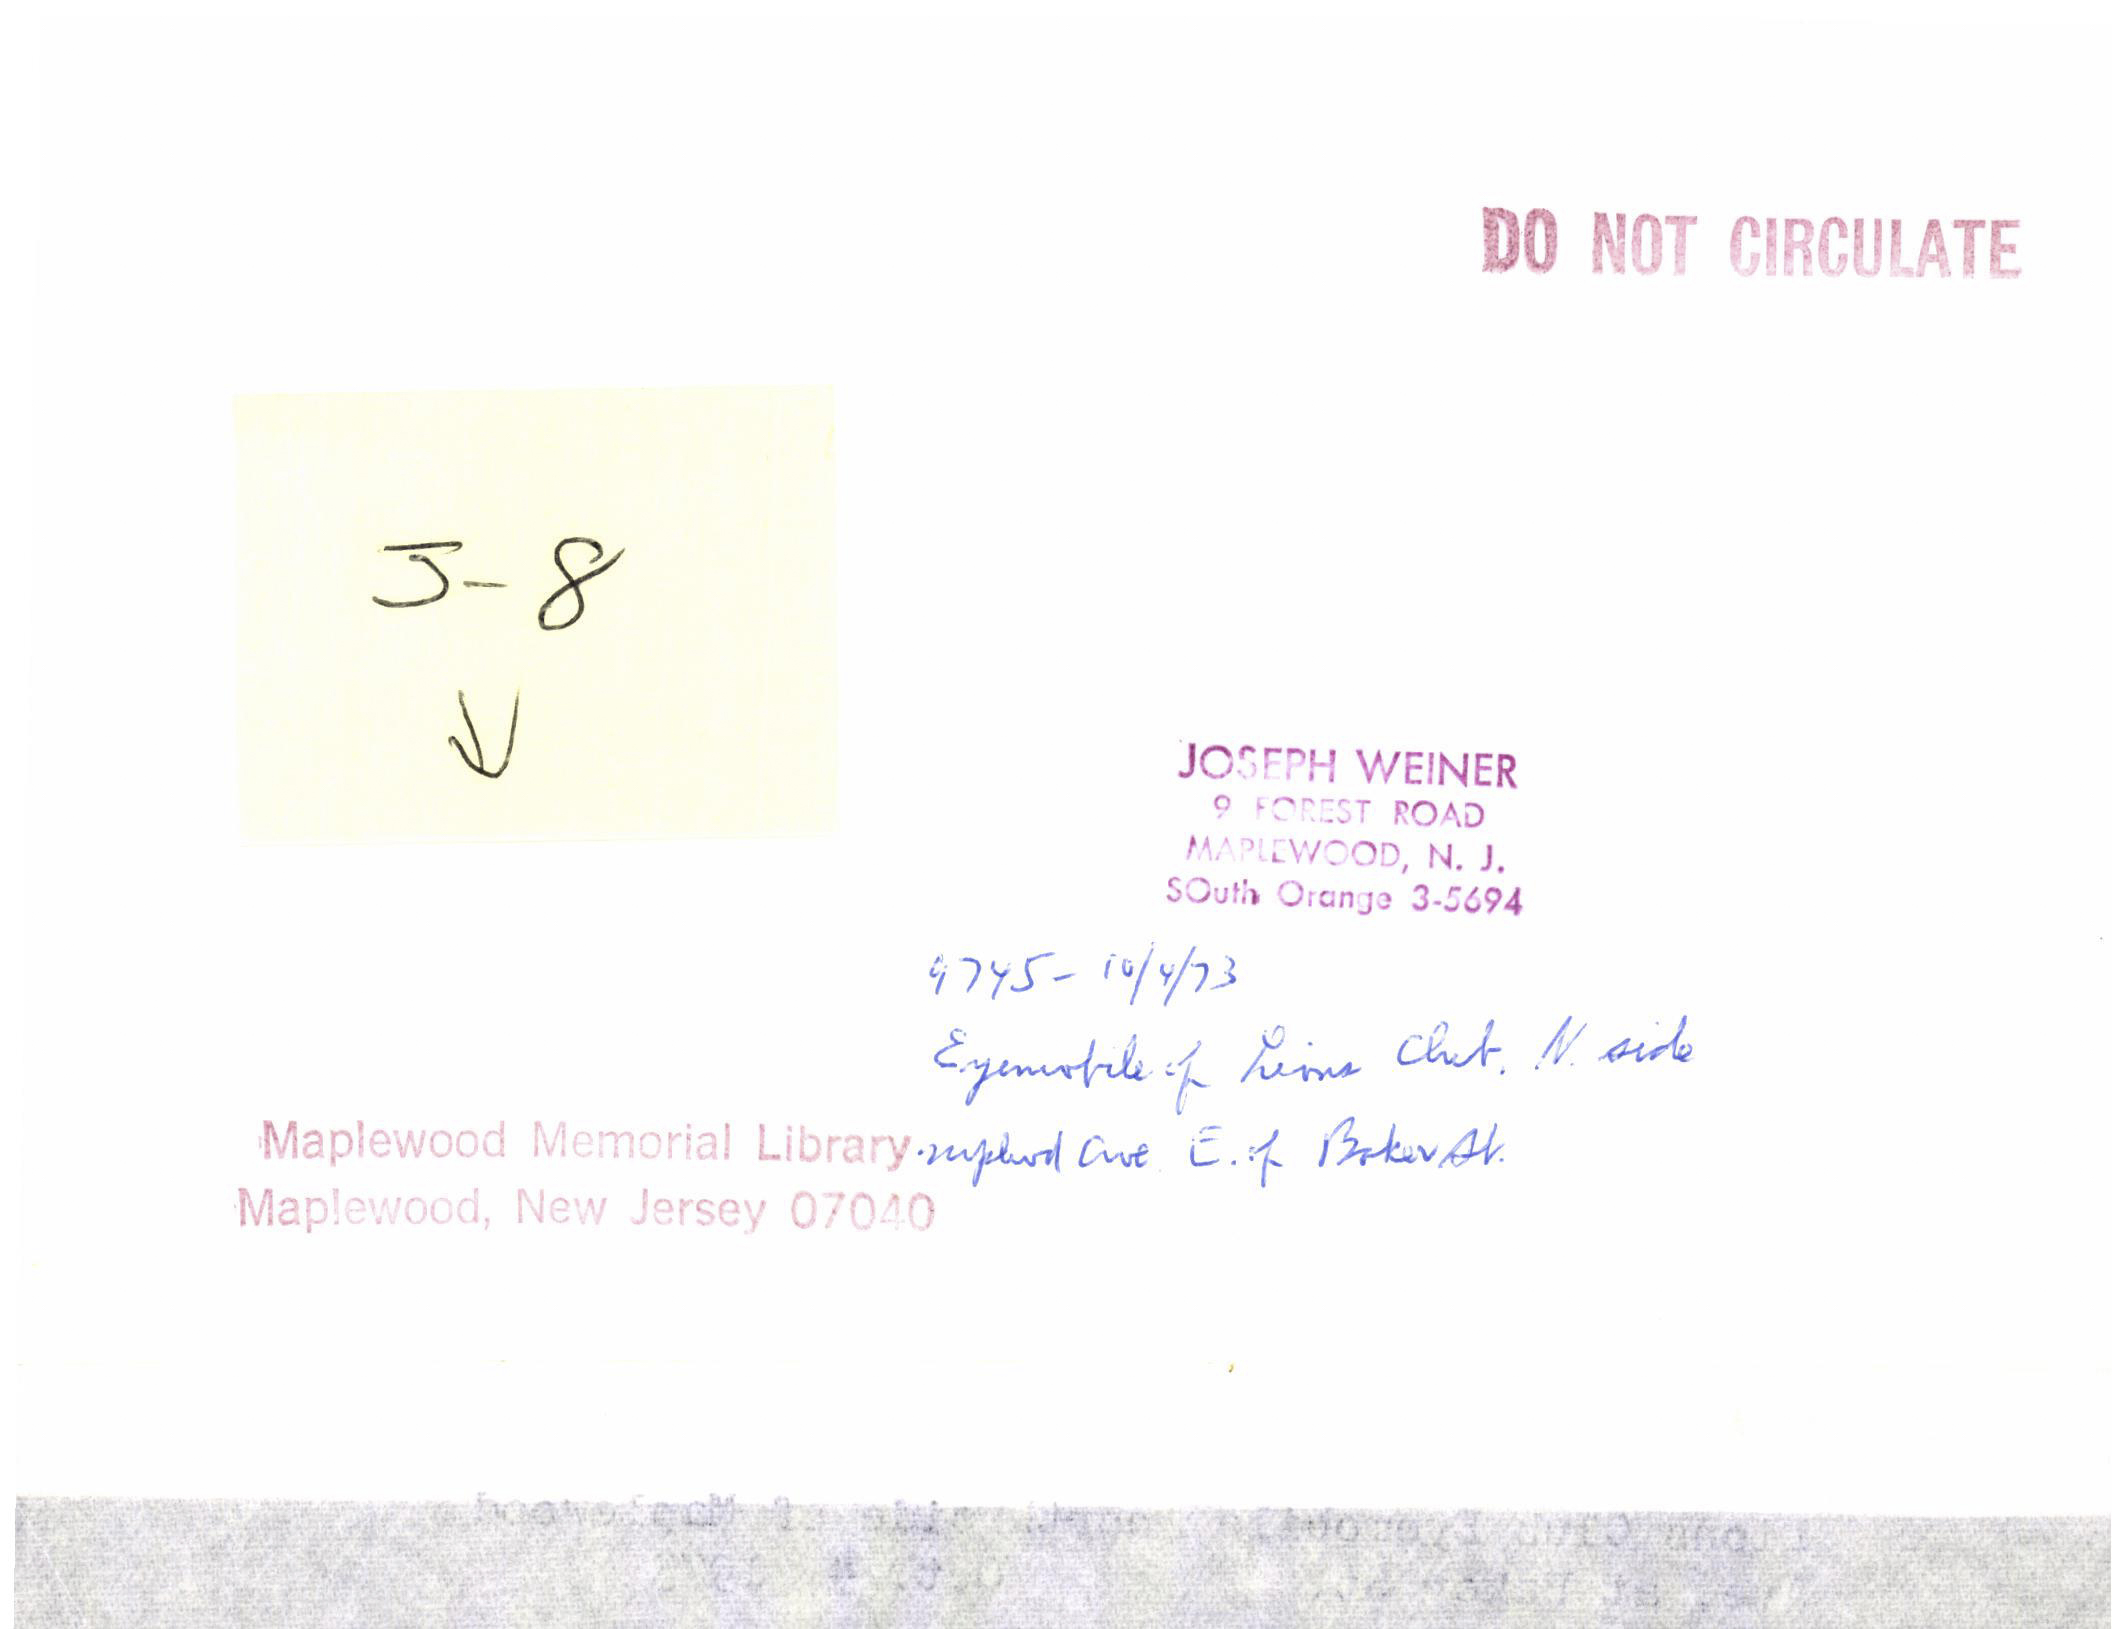 DO NOT CIRCULATE
J-8
JOSEPH WEINER
9 FOREST ROAD
MAPLEWOOD, N. J.
SOuth Orange 3-5694
9745- 10/4/73
Eyemobile of Lions Club. N. side
mplwd Ave E. of Baker St.
Maplewood Memorial Library
Maplewood, New Jersey 07040